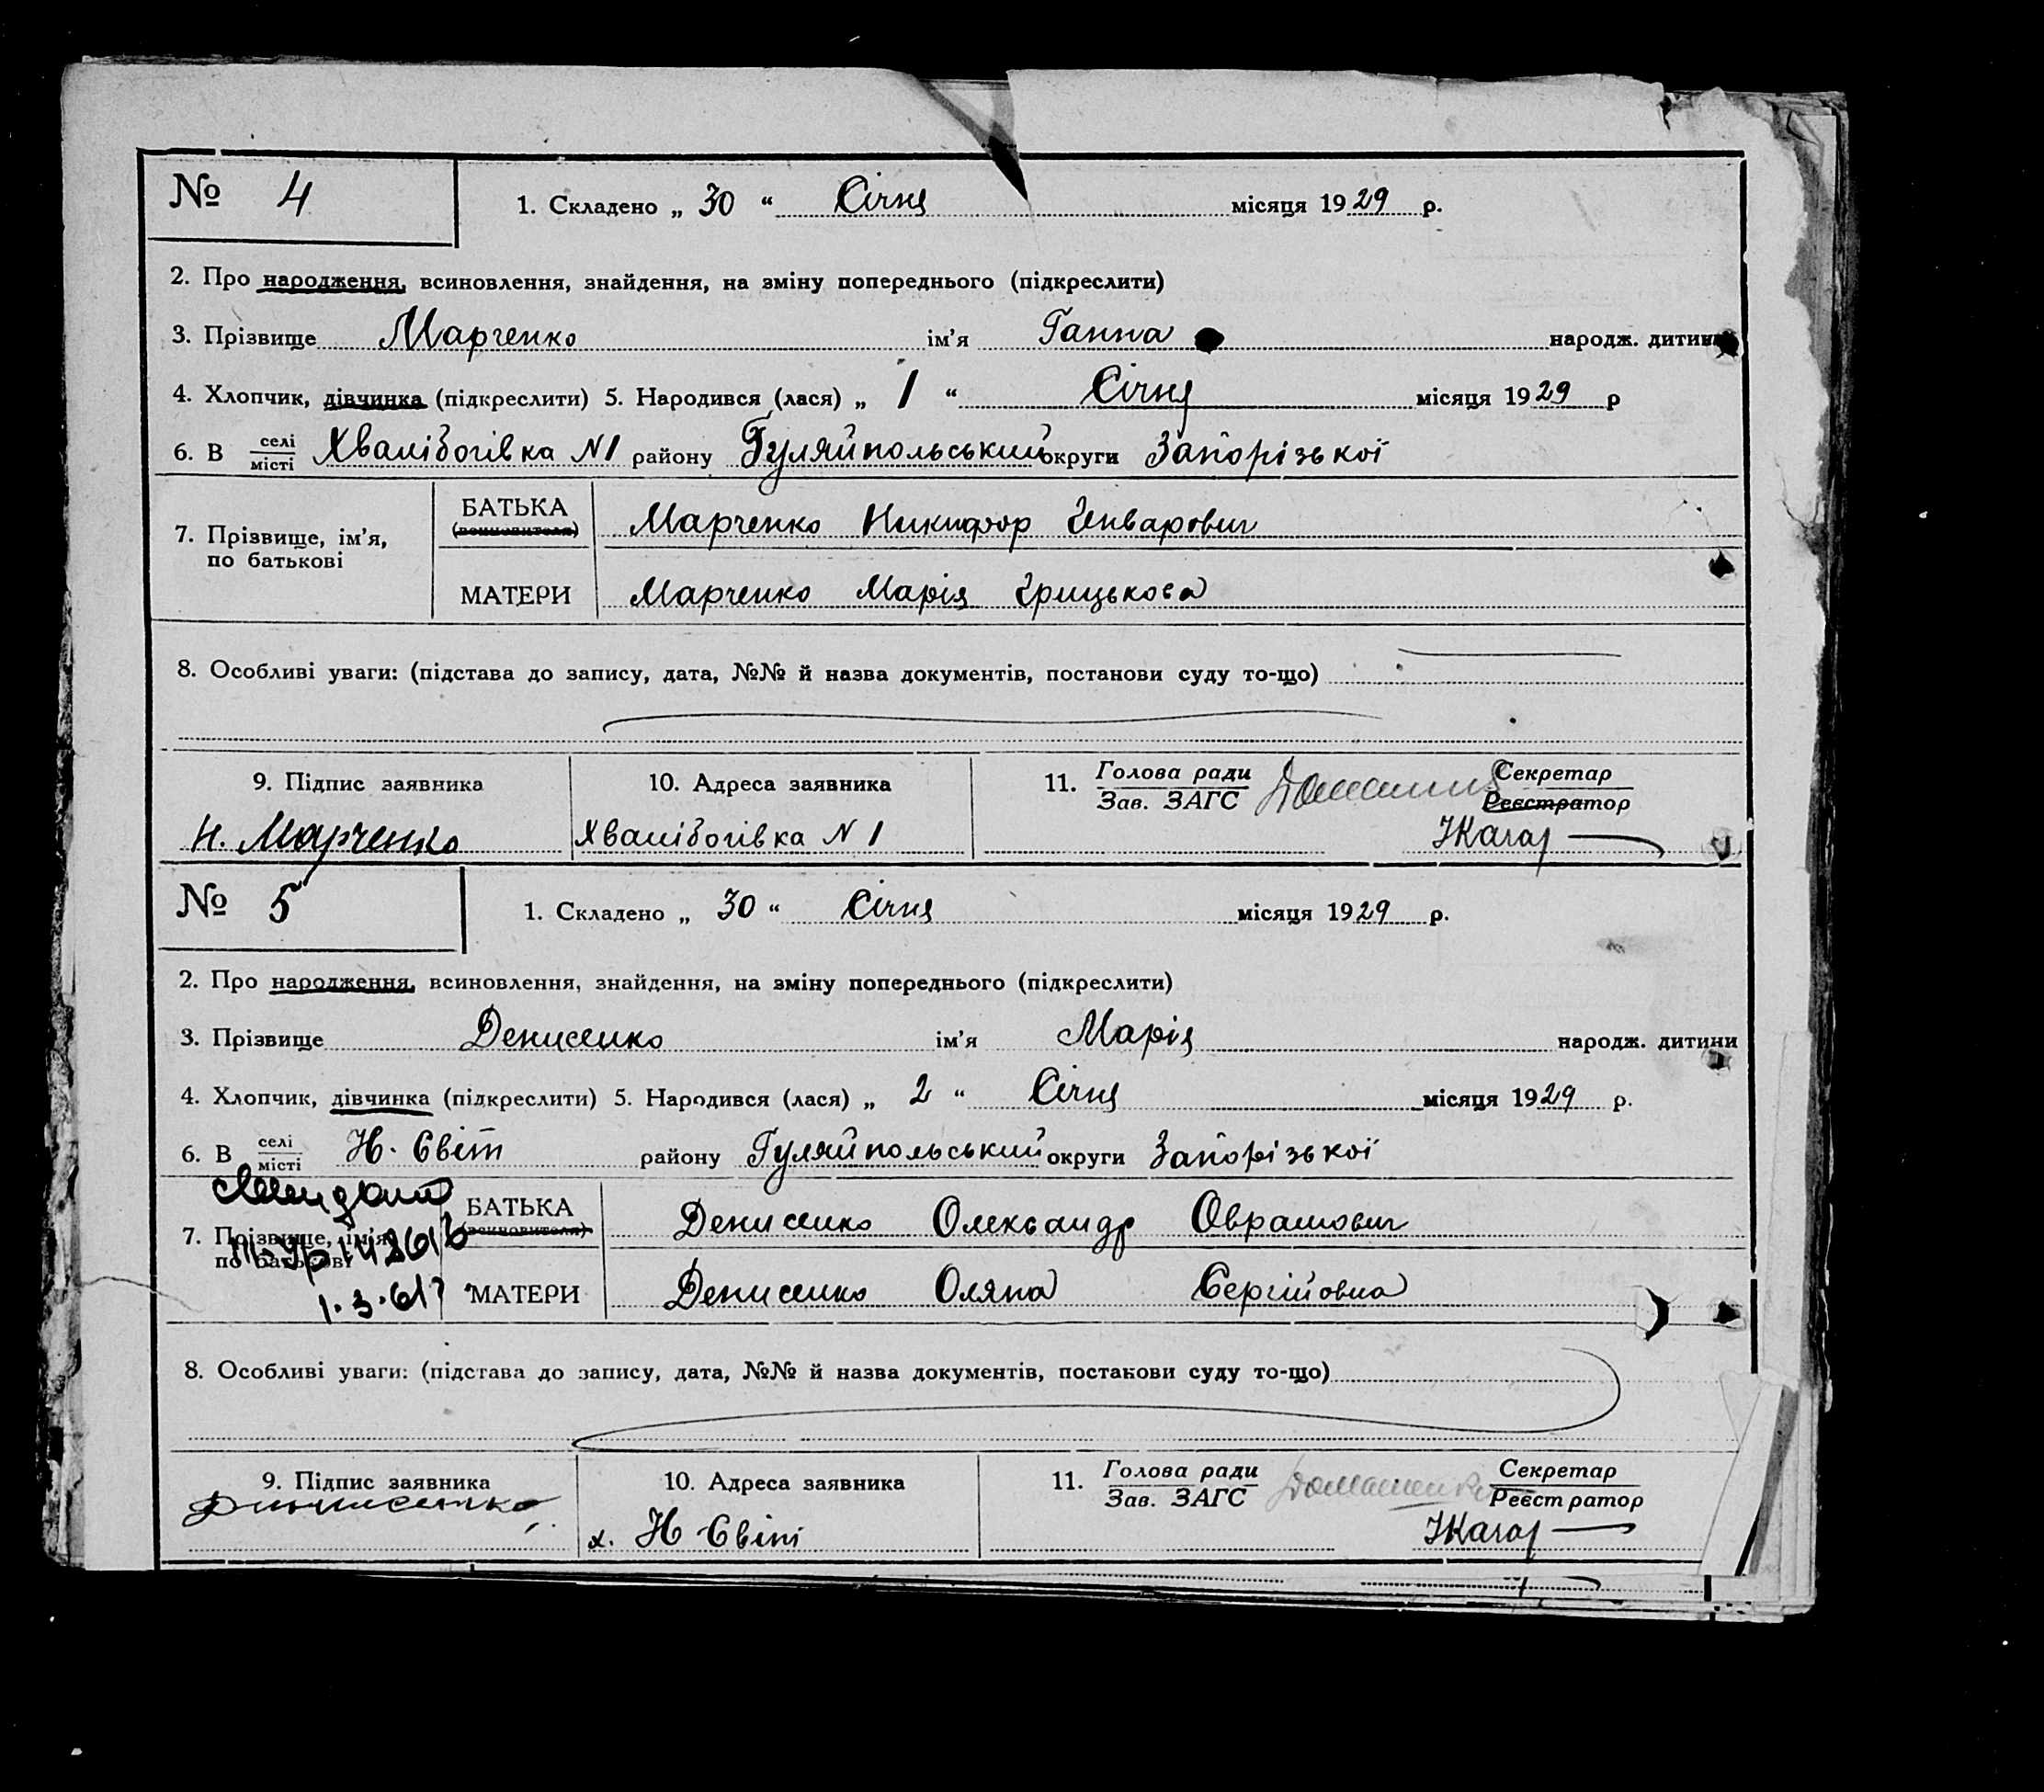 № 4 1. Складено „ 30 “ Січня місяця 1929 р.
2. Про народження, всиновлення, знайдення, на зміну попереднього (підкреслити)
3. Прізвище Марченко ім’я Ганна народж. дитини
4. Хлопчик, дівчинка (підкреслити) 5. Народився (лася) „ 1 “ Січня місяця 1929 р
6. В селі місті Хвалібогівка N1 району Гуляйпольський округи Запорізької
7. Прізвище, ім’я, по батькові
БАТЬКА (всиновителя) Марченко Никифор
МАТЕРИ Марченко Марія Грицькова
8. Особливі уваги: (підстава до запису, дата, №№ й назва документів, постанови суду то-що)
9. Підпис заявника 10. Адреса заявника 11. Голова ради Зав. ЗАГС Секретар Реєстратор
Н. Марченко Хвалібогівка N 1
№ 5 1. Складено „ 30 “ Січня місяця 1929 р.
2. Про народження, всиновлення, знайдення, на зміну попереднього (підкреслити)
3. Прізвище Денисенко ім’я Марія народж. дитини
4. Хлопчик, дівчинка (підкреслити) 5. Народився (лася) „ 2 “ Січня місяця 1929 р.
6. В селі місті Н. Світ району Гуляйпольський округи Запорізької
7. Прізвище, ім’я, по батькові
1.3.61
БАТЬКА (всиновителя) Денисенко Олександр Оврамович
МАТЕРИ Денисенко Оляна Сергійовна
8. Особливі уваги: (підстава до запису, дата, №№ й назва документів, постанови суду то-що)
9. Підпис заявника 10. Адреса заявника 11. Голова ради Зав. ЗАГС Секретар Реєстратор
х. Н Світ